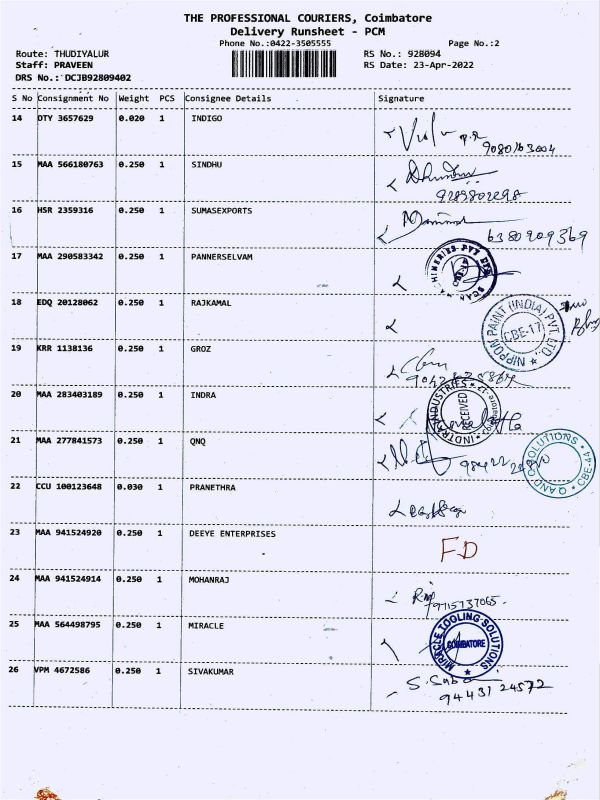 THE PROFESSIONAL COURIERS, Coimbatore
Delivery Runsheet - PCM
Phone No.:0422-3505555
Page No.:2
Route: THUDIYALUR
RS No.: 928094
Staff: PRAVEEN
RS Date: 23-Apr-2022
DRS No.: DCJB92809402
S No Consignment No Weight PCS Consignee Details Signature
14 DTY 3657629 0.020 1 INDIGO
15 MAA 566180763 0.250 1 SINDHU
16 HSR 2359316 0.250 1 SUMASEXPORTS
6380909369
17 MAA 290583342 0.250 1 PANNERSELVAM
18 EDQ 20128062 0.250 1 RAJKAMAL
NIPPON PAINT (INDIA) PVT. LTD.,
CBE-17
19 KRR 1138136 0.250 1 GROZ
20 MAA 283403189 0.250 1 INDRA
RECEIVED
21 MAA 277841573 0.250 1 QNQ
Q AND Q SOLUTIONS
CBE-44
22 CCU 100123648 0.030 1 PRANETHRA
23 MAA 941524920 0.250 1 DEEYE ENTERPRISES
FD
24 MAA 941524914 0.250 1 MOHANRAJ
9715737065
25 MAA 564498795 0.250 1 MIRACLE
MIRACLE TOOLING SOLUTIONS
COIMBATORE
26 VPM 4672586 0.250 1 SIVAKUMAR
94431 24572